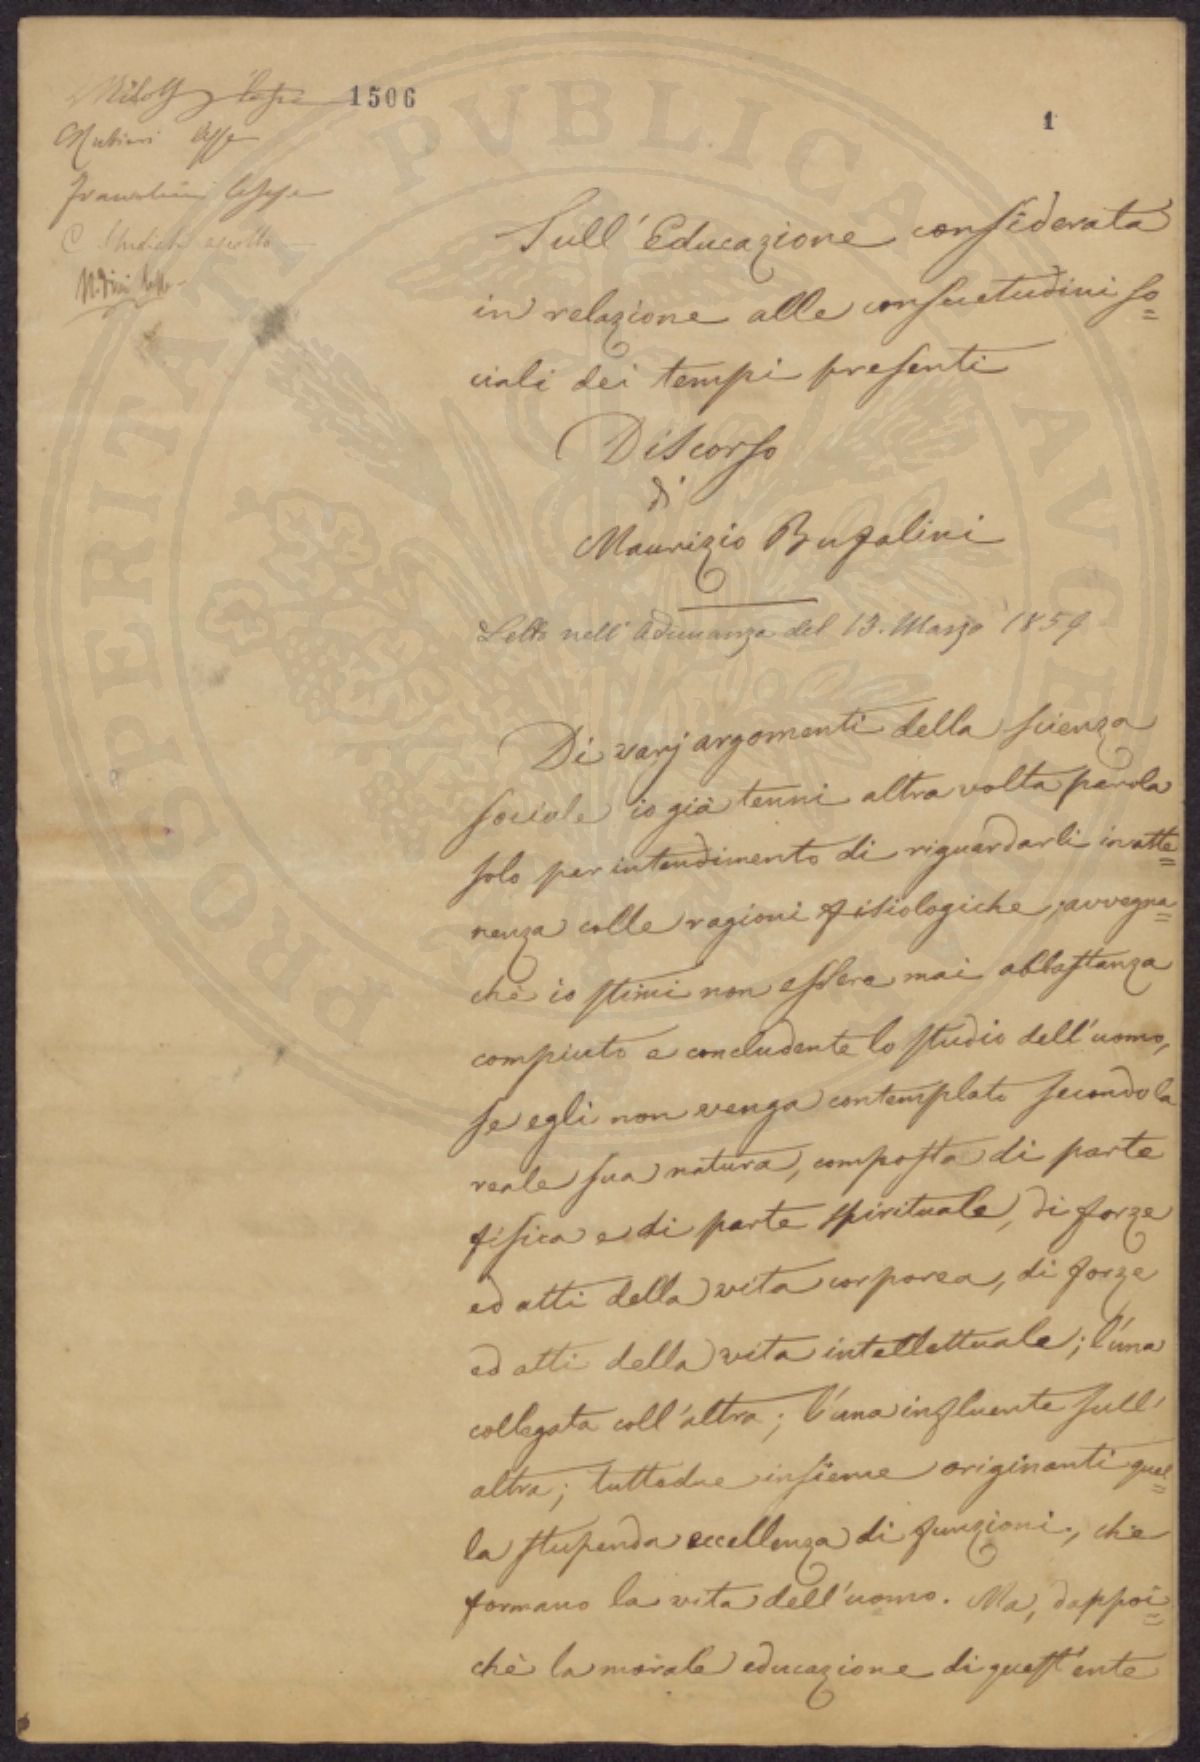 1506
1
Rubieri lesse
Franceschini lesse
C Studiati ascoltò
Sull'Educazione considerata
in relazione alle consuetudini so=
ciali dei tempi presenti
Discorso
di
Maurizio Bufalini
Letto nell'Adunanza del 13. Marzo 1859
Di varj argomenti della scienza
sociale io già tenni altra volta parola
solo per intendimento di riguardarli in atte=
nenza colle ragioni fisiologiche; avvegna=
chè io stimi non essere mai abbastanza
compiuto e concludente lo studio dell'uomo,
se egli non venga contemplato secondo la
reale sua natura, composta di parte
fisica e di parte spirituale, di forze
ed atti della vita corporea, di forze
ed atti della vita intellettuale; l'una
collegata coll'altra; l'una influente sull'
altra; tuttedue insieme originanti quel=
la stupenda eccellenza di funzioni, che
formano la vita dell'uomo. Ma, dappoi=
chè la morale educazione di quest'ente
PROSPERITATI PVBLICAE AVGENDAE